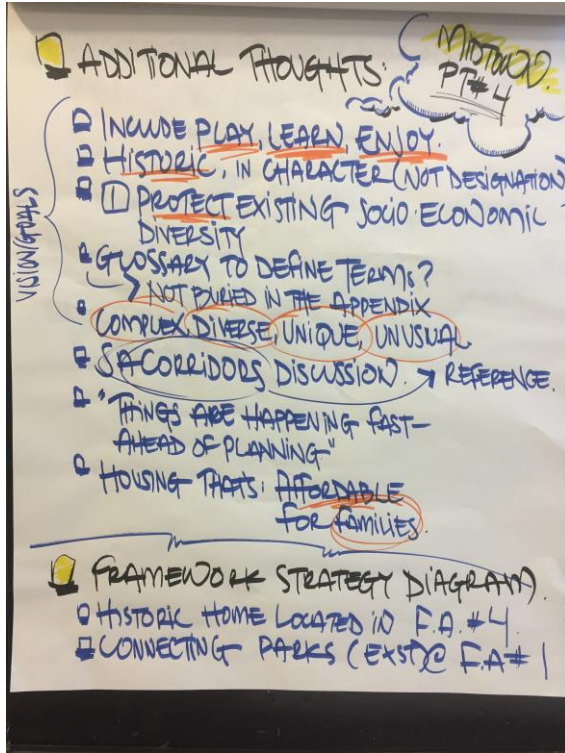 ADDITIONAL THOUGHTS:
MIDTOWN
PT#4
VISION/GOALS
INCLUDE PLAY, LEARN, ENJOY.
HISTORIC, IN CHARACTER (NOT DESIGNATION)
PROTECT EXISTING SOCIO ECONOMIC
DIVERSITY
GLOSSARY TO DEFINE TERMS?
NOT BURIED IN THE APPENDIX
COMPLEX, DIVERSE, UNIQUE, UNUSUAL
SA CORRIDORS DISCUSSION. → REFERENCE.
"THINGS ARE HAPPENING FAST-
AHEAD OF PLANNING"
HOUSING THATS: AFFORDABLE
FOR FAMILIES.
FRAMEWORK STRATEGY DIAGRAM.
HISTORIC HOME LOCATED IN F.A. #4.
CONNECTING PARKS (EXST)@ F.A# 1